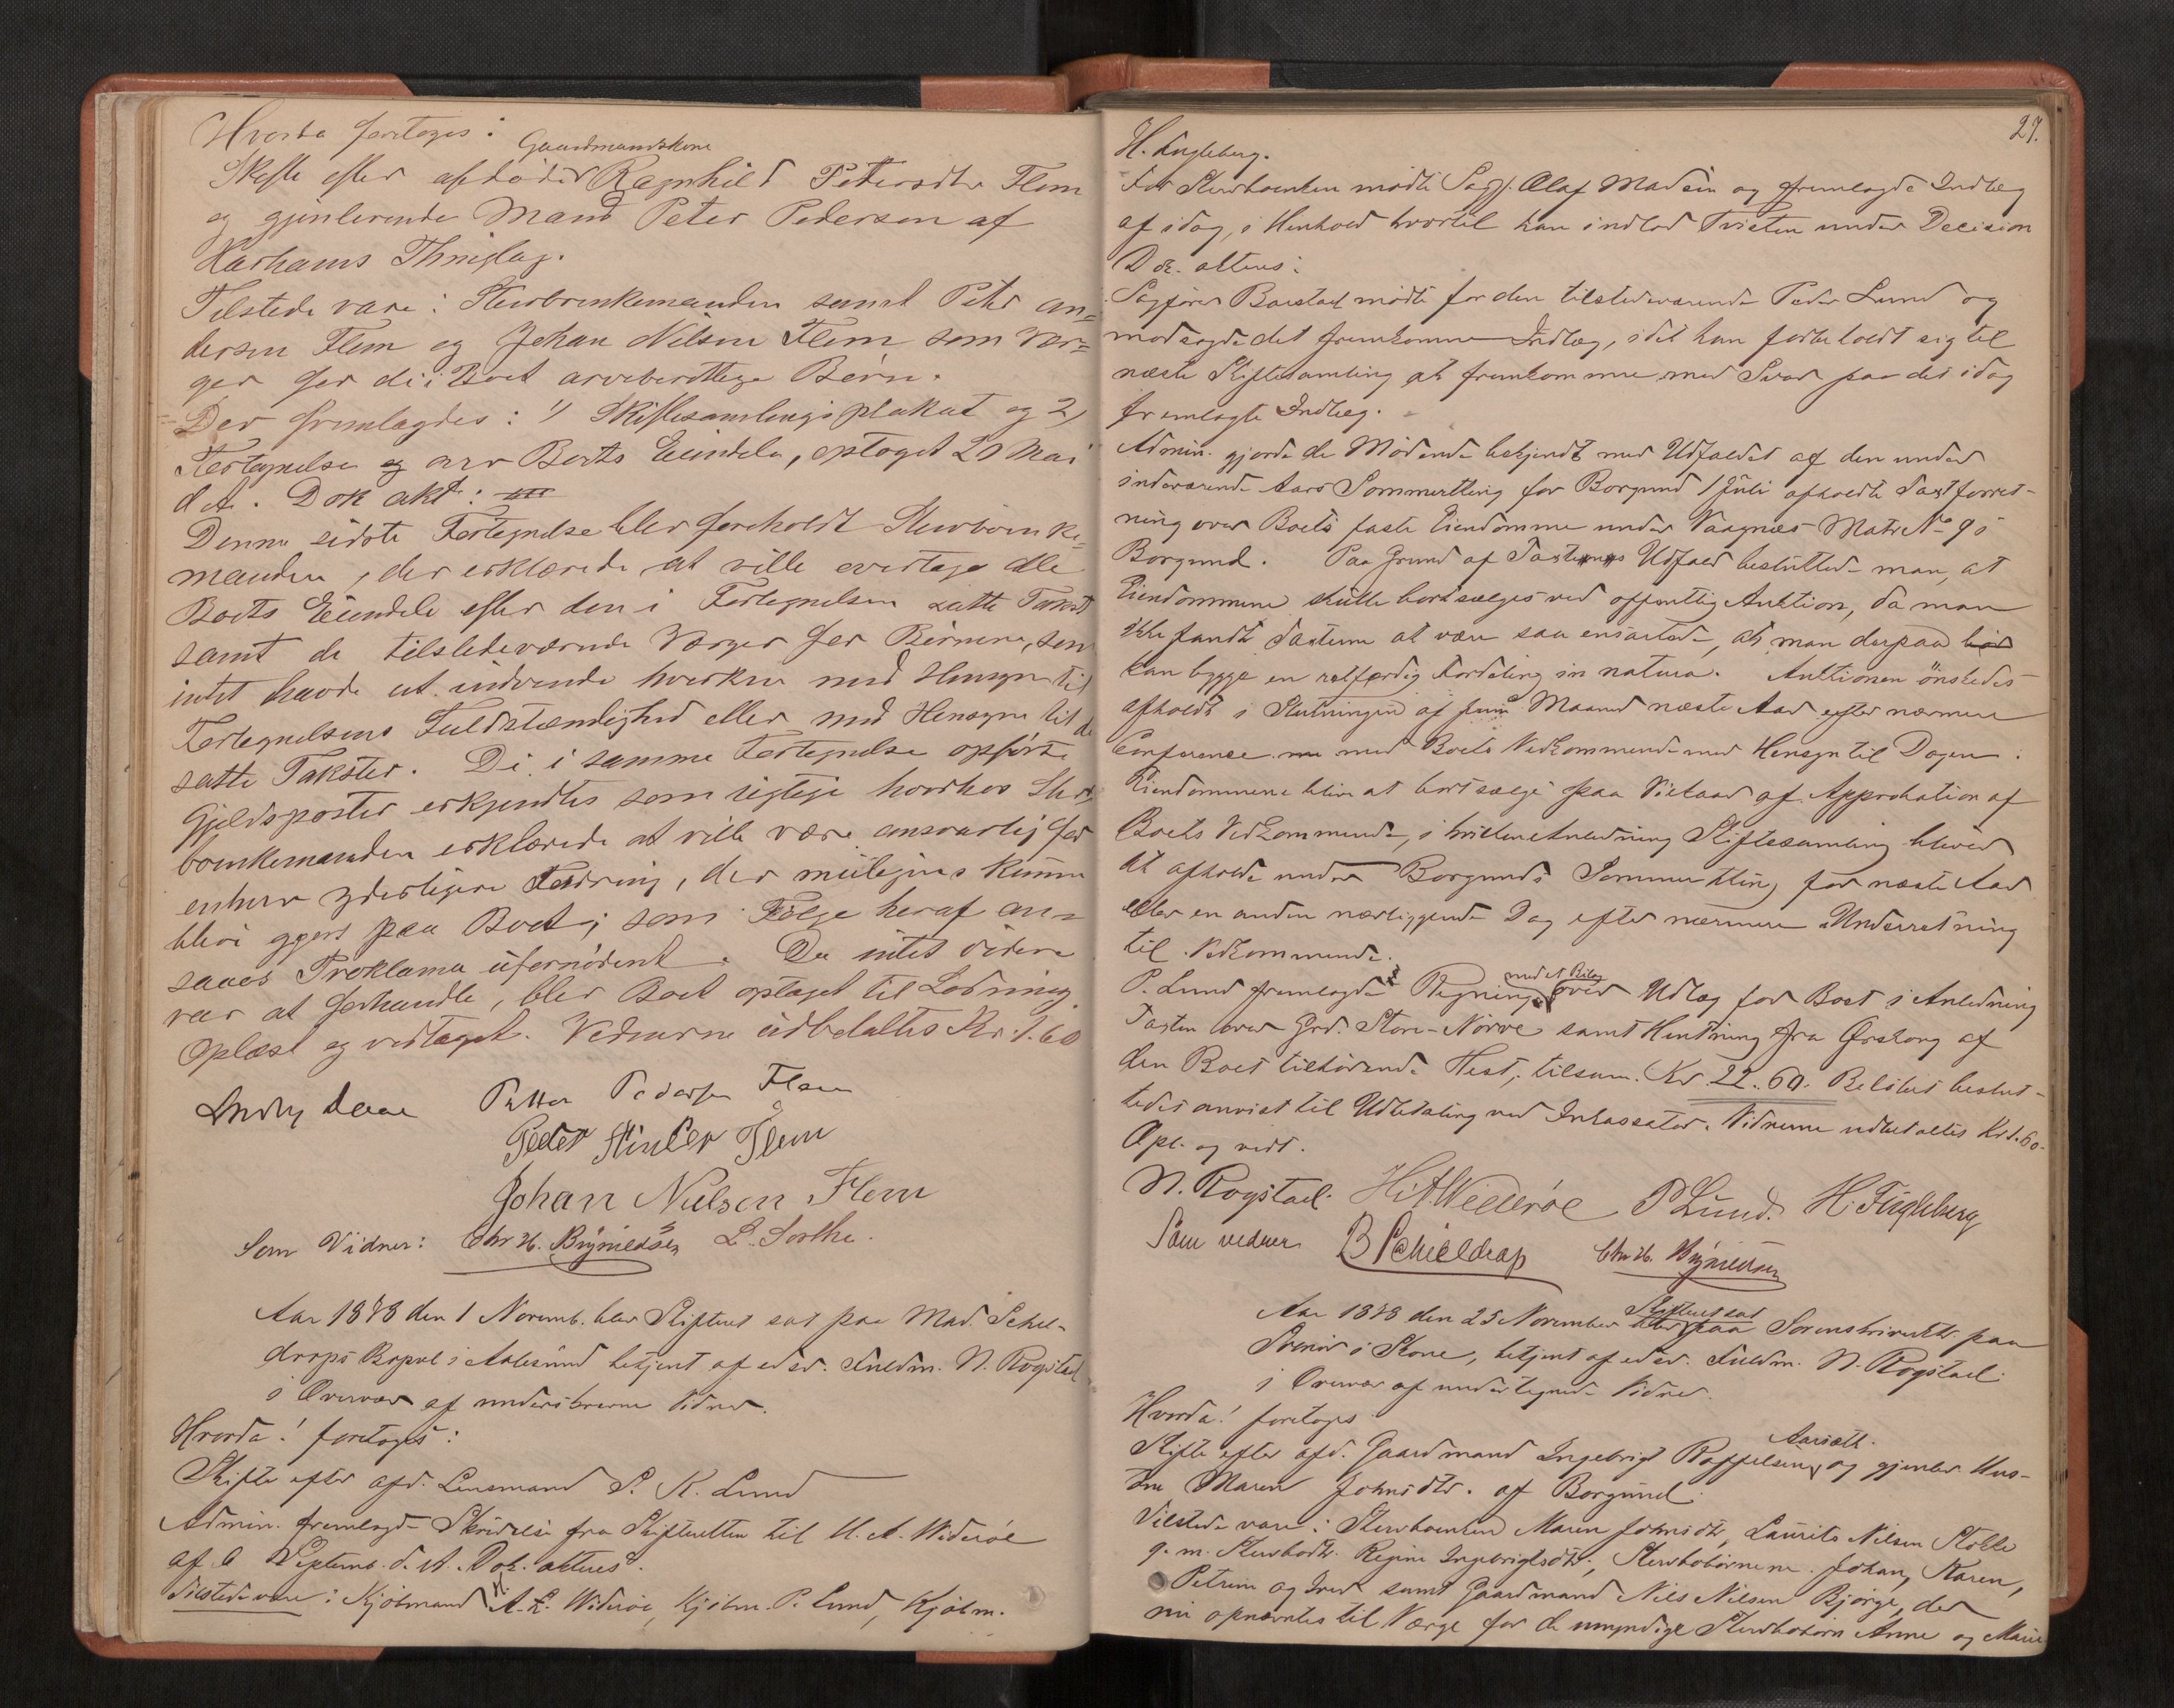 Hvorda foretoges:
Gaardmandskone
Skifte efter afdöde Ragnhild Petersdtr Flem
og gjenlevende Mand Peter Pedersen af
Harhams Thinglag.
Tilstede vare: Stervboenkemanden samt Peter An=
dersen Flem og Johan Nilsen Flem som Vær=
ger for de i Boet arveberettige Börn.
Der fremlagdes: 1/ Skiftesamlingsplakat og 2/
Fortegnelse og over Boets Eiendele, optaget 20 Mai
d. A. Dok akt:
Denne sidste Fortegnelse blev foreholdt Stervboenke=
manden, der erklærede at ville overtage alle
Boets Eiendele efter den i Fortegnelsen satte Takst
samt de tilstedeværende Værger for Börnene, som
intet havde at indvende hverken med Hensyn til
Fortegnelsens Fuldstændighed eller med Hensyn til de
satte Takster. De i samme Fortegnelse opförte
Gjeldsposter erkjendtes som rigtige hvorhos Sterv
boenkemanden erklærede at ville være ansvarlig for
enhver yderligere Fordring, der muligens kunne
blive gjort paa Boet; som Fölge heraf an=
saaes Proklama ufornödent. Da intet videre
var at forhandle, blev Boet optaget til Lodning.
Oplæst og vedtaget. Vidnerne udbetaltes Kr. 1.60
Petter Pedersen Flem
Peder Flem
Johan Nielsen Flem
Som Vidner: Chr H. Brynildsen L. Sorthe.
Aar 1878 den 1 Novemb. blev Skifteret sat paa Mad. Schel-
drops Bopæl i Aalesund betjent af edsv. Fuldm. N. Rogstad
i Overvær af underskrevne Vidner.
Hvorda! foretoges:
Skifte efter afd. Lensmand P. K. Lund
Admin. fremlagde Skrivelse fra Skifteretten til H. A. Wideröe
af 6 Septemb. d. A. Dok. akteres.
Tilstede vare: Kjöbmand H. A. L. Wideröe, Kjöbm. P. Lund, Kjöbm.
27.
H. Fugleberg.
For Stervboenken mödte Sagf. Olaf Madsen og fremlagde Indlæg
af idag, i Henhold hvortil han indlod Tvisten under Decision
Dok. akteres:
Sagförer Barstad mödte for den tilstedeværende Peder Lund og
modsagde det fremkomne Indlæg, idet han forbeholdt sig til
næste Skiftesamling at fremkomme med Svar paa det idag
fremlagte Indlæg.
Admin. gjorde de Mödende bekjendt med Udfaldet af den under
indeværende Aars Sommerthing for Borgund 1 Juli afholdte Taxtforret-
ning over Boets faste Eiendomme under Vaagnæs Matr No 9 i
Borgund. Paa Grund af Taxternes Udfald besluttede man, at
Eiendommene skulle bortsælges ved offentlig Auktion, da man
ikke fandt Taxterne at være saa ensartede, at man derpaa
kan bygge en retfærdig Fordeling in natura. Auktionen önskedes
afholdt i Slutningen af Juni Maaned næste Aar efter nærmere
Conference med Boets Vedkommende med Hensyn til Dagen.
Eiendommene blive at bortsælge paa Vilkaar af Approbation af
Boets Vedkommende, i hvilken Anledning Skiftesamling bliver
at afholde under Borgunds Sommerthing for næste Aar
eller en anden nærliggende Dag efter nærmere Underretning
til Vedkommende.
med et Bilag
P. Lund fremlagde Regning over Udlæg for Boet i Anledning
Taxten over Grd. Store-Nörve samt Hentning fra Ørskog af
den Boet tilhörende Hest, tilsam. Kr 22.60. Belöbet beslut-
tedes anvist til Udbetaling ved Inkassator. Vidnerne udbetaltes Kr 1.60.
Opl. og vedt.
N. Rogstad. H. A. Wideröe P Lund. H. Fugleberg
Som vidner B Scheldrop Chr. H. Brynildsen
Aar 1878 den 25 November blev Skifteret sat paa Sorenskriverktr. paa
Svenör i Skove, betjent af edsv. Fuldm. N. Rogstad
i Overvær af undertegnede Vidner.
Hvorda! foretoges
Aarseth.
Skifte efter afd. Gaardmand Ingebrigt Roffelsen og gjenlev. Hus-
tru Maren Johnsdtr. af Borgund.
Tilstede vare: Stervboenken Maren Johnsdtr, Laurits Nilsen Slotte
g. m. Stervbodtr. Regine Ingebrigtsdtr; Stervbobörnene Johan, Karen,
Petrine og Iver samt Gaardmand Nils Nilsen Bjørge, der
nu opnævntes til Værge for de umyndige Stervbobörn Anne og Marie